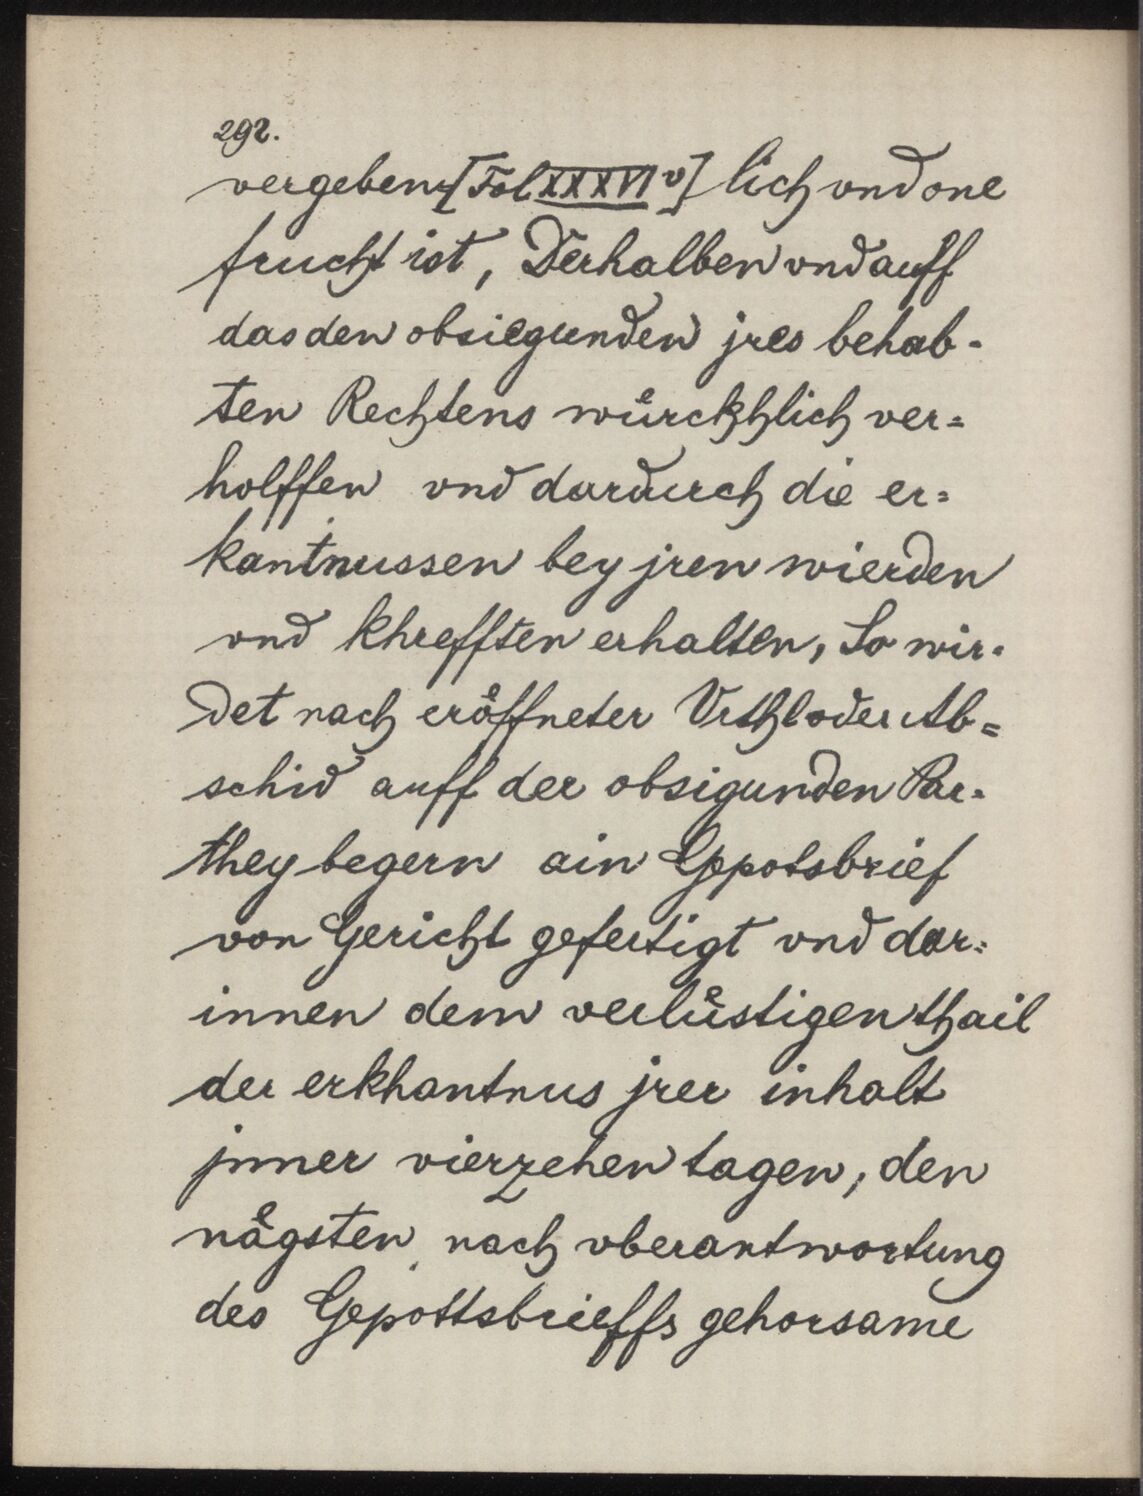 292.
vergeben[Fol XXXVI v] lich vnd one
frucht ist, Derhalben vnd auff
das den obsiegunden jres behab-
ten Rechtens wůrckhlich ver=
holffen vnd dardurch die er=
kantnussen bey jren wierden
vnd khrefften erhalten, So wir-
det nach eröffneter Vrthl oder Ab=
schid auff der obsigunden Par-
they begern ain Gepotsbrief
von Gericht gefertigt vnd dar=
innen dem verlůstigen thail
der erkhantnus jrer inhalt
jnner vierzehen tagen, den
någsten nach vberantwortung
des Gepottsbrieffs gehorsame